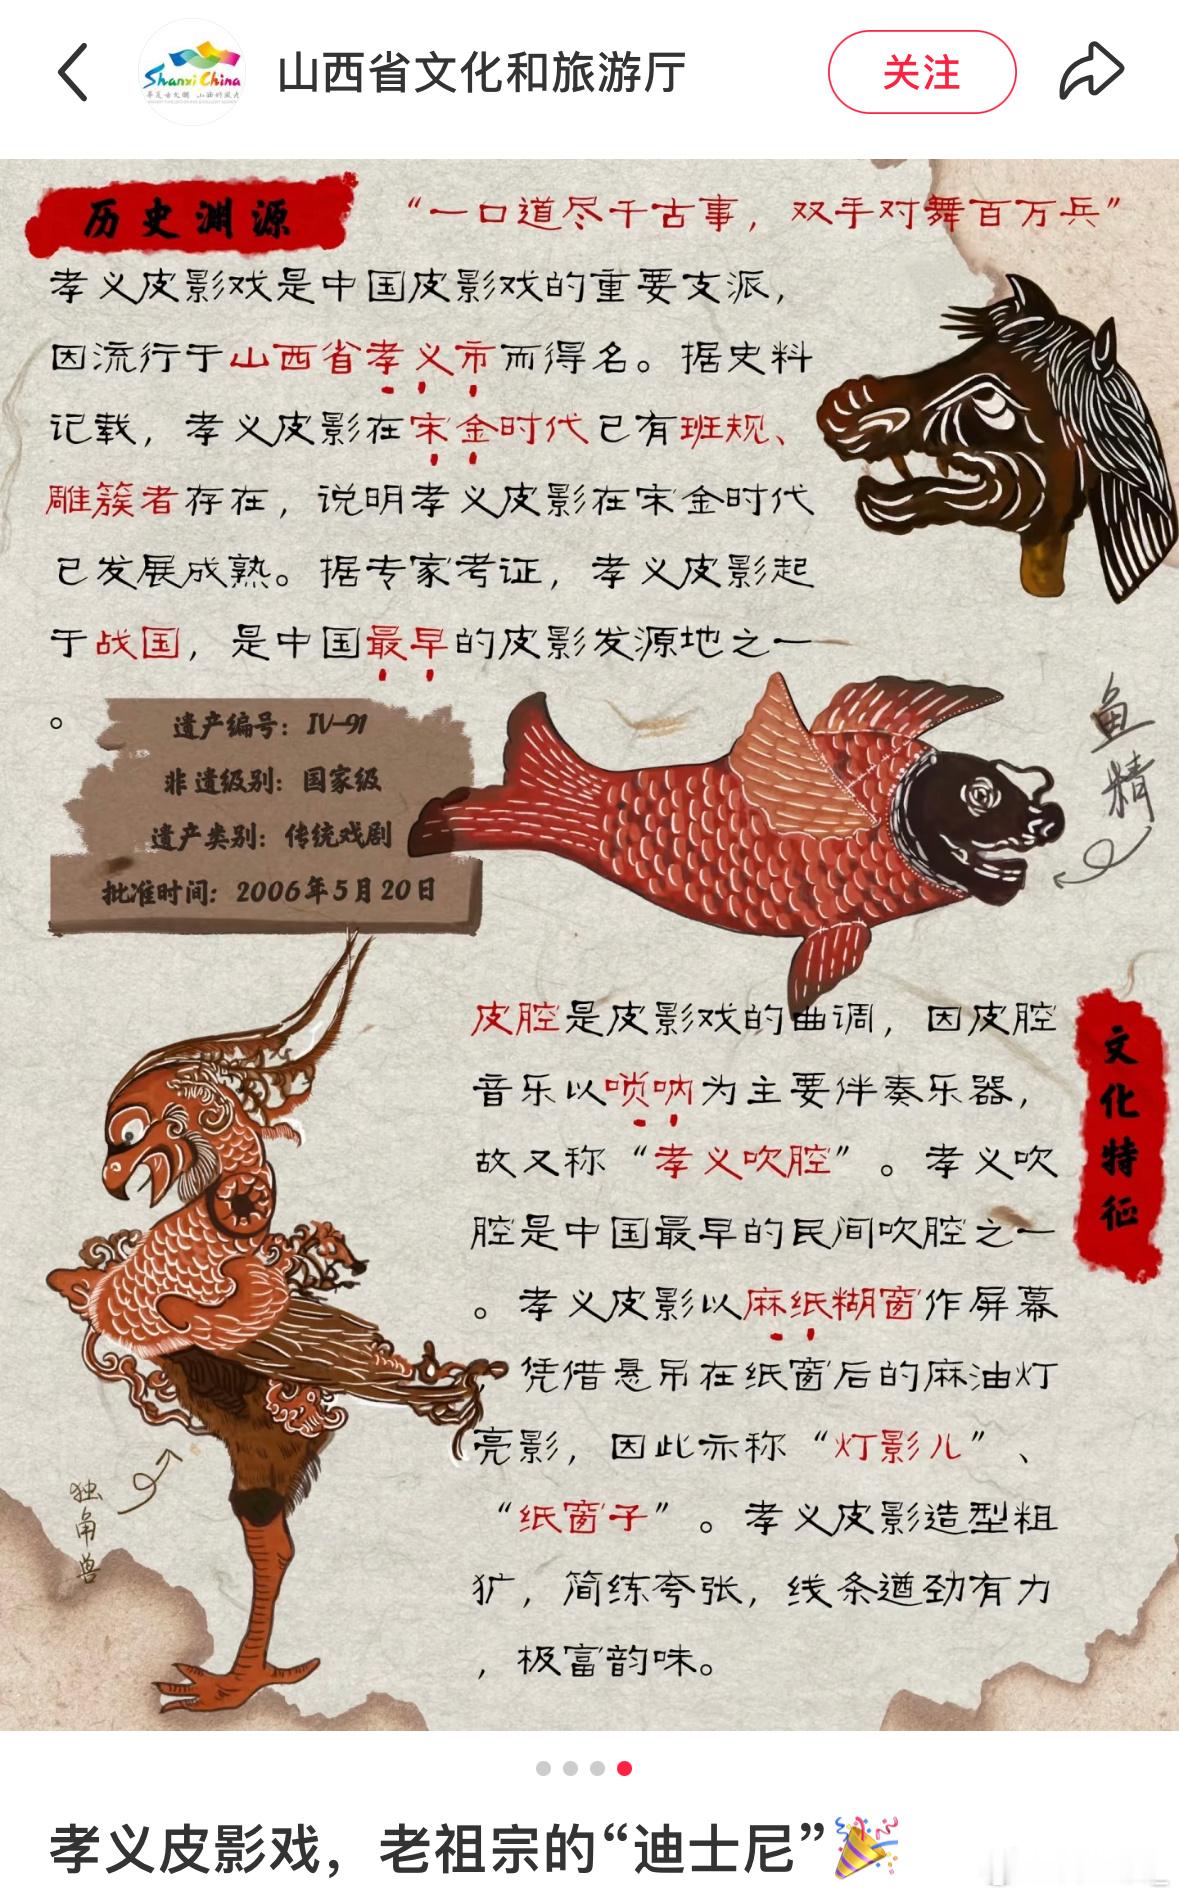 Shanxi China
山西省文化和旅游厅
关注
历史渊源
“一口道尽千古事，双手对舞百万兵”
孝义皮影戏是中国皮影戏的重要支派，
因流行于山西省孝义市而得名。据史料
记载，孝义皮影在宋金时代已有班规、
雕簇者存在，说明孝义皮影在宋金时代
已发展成熟。据专家考证，孝义皮影起
于战国，是中国最早的皮影发源地之一
。
遗产编号：IV-91
非遗级别：国家级
遗产类别：传统戏剧
批准时间：2006年5月20日
鱼精
皮腔是皮影戏的曲调，因皮腔
音乐以唢呐为主要伴奏乐器，
故又称“孝义吹腔”。孝义吹
腔是中国最早的民间吹腔之一
。孝义皮影以麻纸糊窗作屏幕
，凭借悬吊在纸窗后的麻油灯
亮影，因此亦称“灯影儿”、
“纸窗子”。孝义皮影造型粗
犷，简练夸张，线条遒劲有力
，极富韵味。
文化特征
独角兽
孝义皮影戏，老祖宗的“迪士尼”🎉